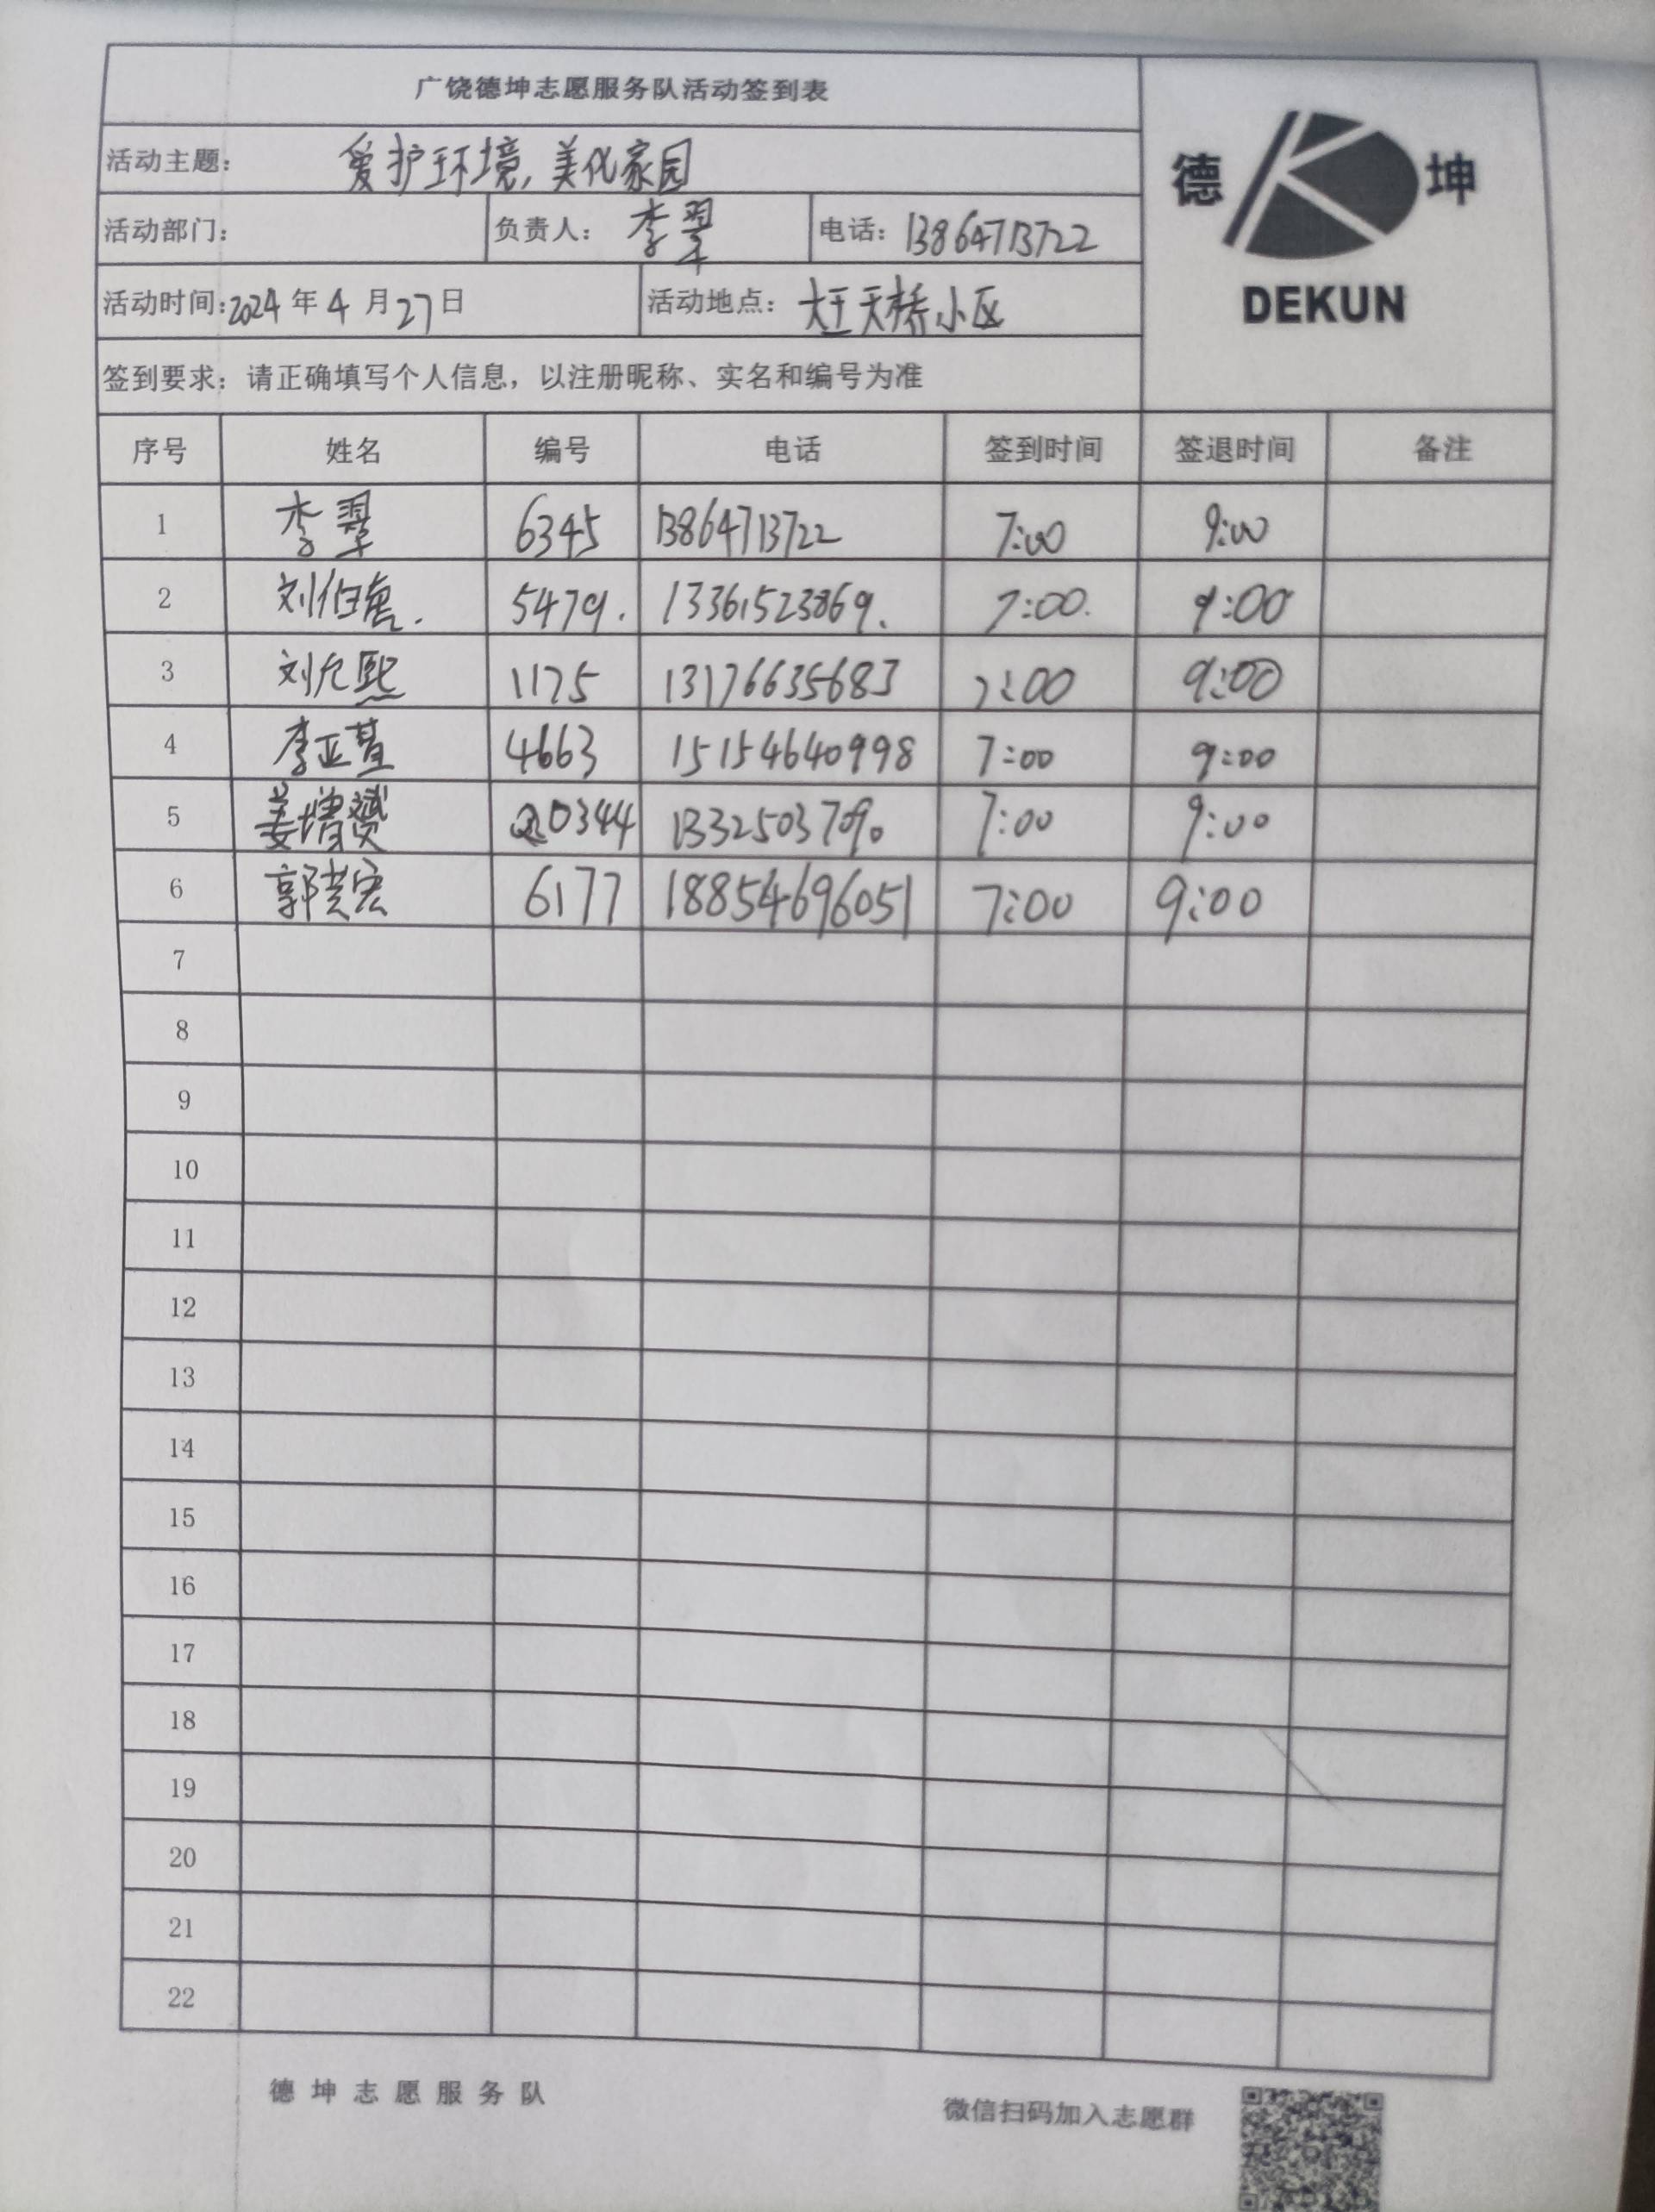 广饶德坤志愿服务队活动签到表
活动主题： 爱护环境,美化家园
德 坤
DEKUN
活动部门： 负责人： 李翠 电话：13864713722
活动时间:2024年4月27日 活动地点： 大王天桥小区
签到要求：请正确填写个人信息，以注册昵称、实名和编号为准
序号 姓名 编号 电话 签到时间 签退时间 备注
1 李翠 6345 13864713722 7:00 9:00
2 5479. 13361523869. 7:00. 9:00
3 刘允熙 1175 13176635683 7:00 9:00
4 4663 15154640998 7:00 9:00
5 姜增赟 20344 7:00 9:00
6 6177 18854696051 7:00 9:00
7
8
9
10
11
12
13
14
15
16
17
18
19
20
21
22
德坤志愿服务队
微信扫码加入志愿群